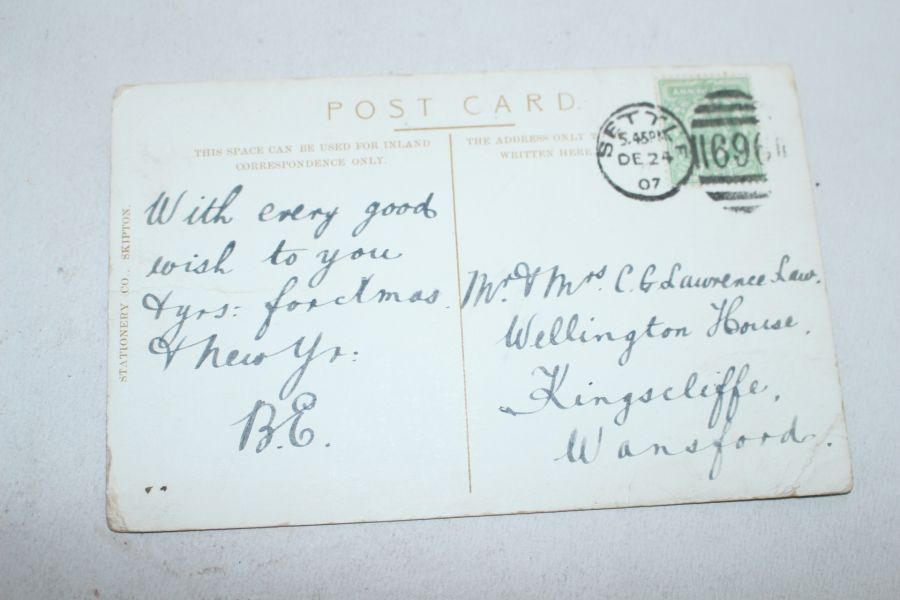 POST CARD.
THIS SPACE CAN BE USED FOR INLAND
CORRESPONDENCE ONLY.
THE ADDRESS ONLY T
WRITTEN HERE
SETTLE
5.45PM
DE 24
07
696
STATIONERY CO., SKIPTON.
With every good
wish to you
& yrs: for Xmas
& New Yr:
B.E.
Mr. & Mrs C. G Lawrence Law.
Wellington House.
Kingscliffe,
Wansford.